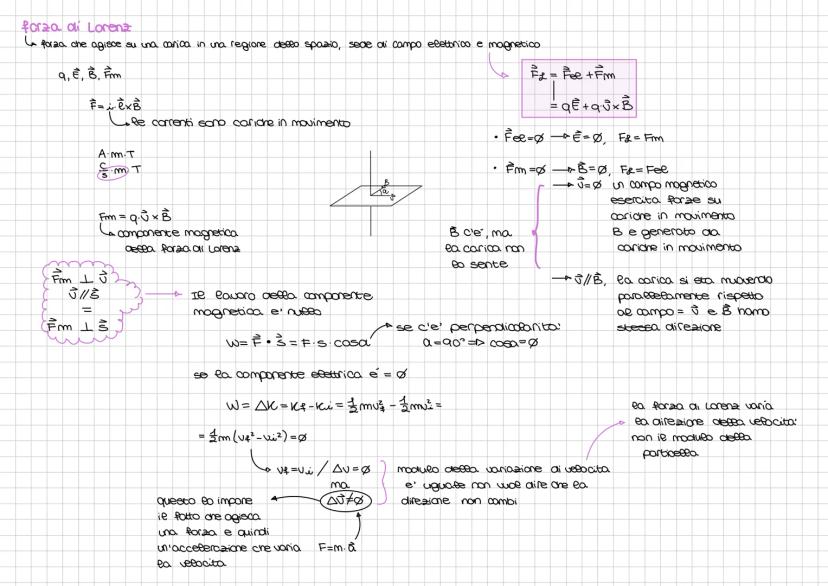 forza di Lorenz
↳ forza che agisce su una carica in una regione dello spazio, sede di campo elettrico e magnetico
q, E⃗, B⃗, F⃗m
F⃗ = i · ℓ⃗ × B⃗
↳ le correnti sono cariche in movimento
A · m · T
C/s · m T
Fm = q · v⃗ × B⃗
↳ componente magnetica
della forza di Lorenz
B
α
v⃗
F⃗L = F⃗el + F⃗m
= qE⃗ + q · v⃗ × B⃗
• F⃗el = ∅ → E⃗ = ∅, FL = Fm
• F⃗m = ∅ → B⃗ = ∅, FL = Fel
→ v⃗ = ∅ un campo magnetico
esercita forze su
cariche in movimento
B è generato da
cariche in movimento
B c'e', ma
la carica non
lo sente
→ v⃗ // B⃗, la carica si sta muovendo
parallelamente rispetto
al campo = v⃗ e B⃗ hanno
stessa direzione
F⃗m ⊥ v⃗
v⃗ // s⃗
=
F⃗m ⊥ s⃗
→ Il lavoro della componente
magnetica e' nullo
W = F⃗ • s⃗ = F · s · cosα
se c'e' perpendicolarita'
α = 90° ⇒ cosα = ∅
se la componente elettrica e' = ∅
W = ΔK = Kf - Ki = ½mvf² - ½mvi² =
= ½m(vf² - vi²) = ∅
↳ vf = vi / Δv = ∅
ma
Δv⃗ ≠ ∅
modulo della variazione di velocita
e' uguale non vuol dire che la
direzione non cambi
la forza di Lorenz varia
la direzione della velocita'
non il modulo della
particella
questo lo impone
il fatto che agisca
una forza e quindi
un'accelerazione che varia
la velocita
F = m · a⃗